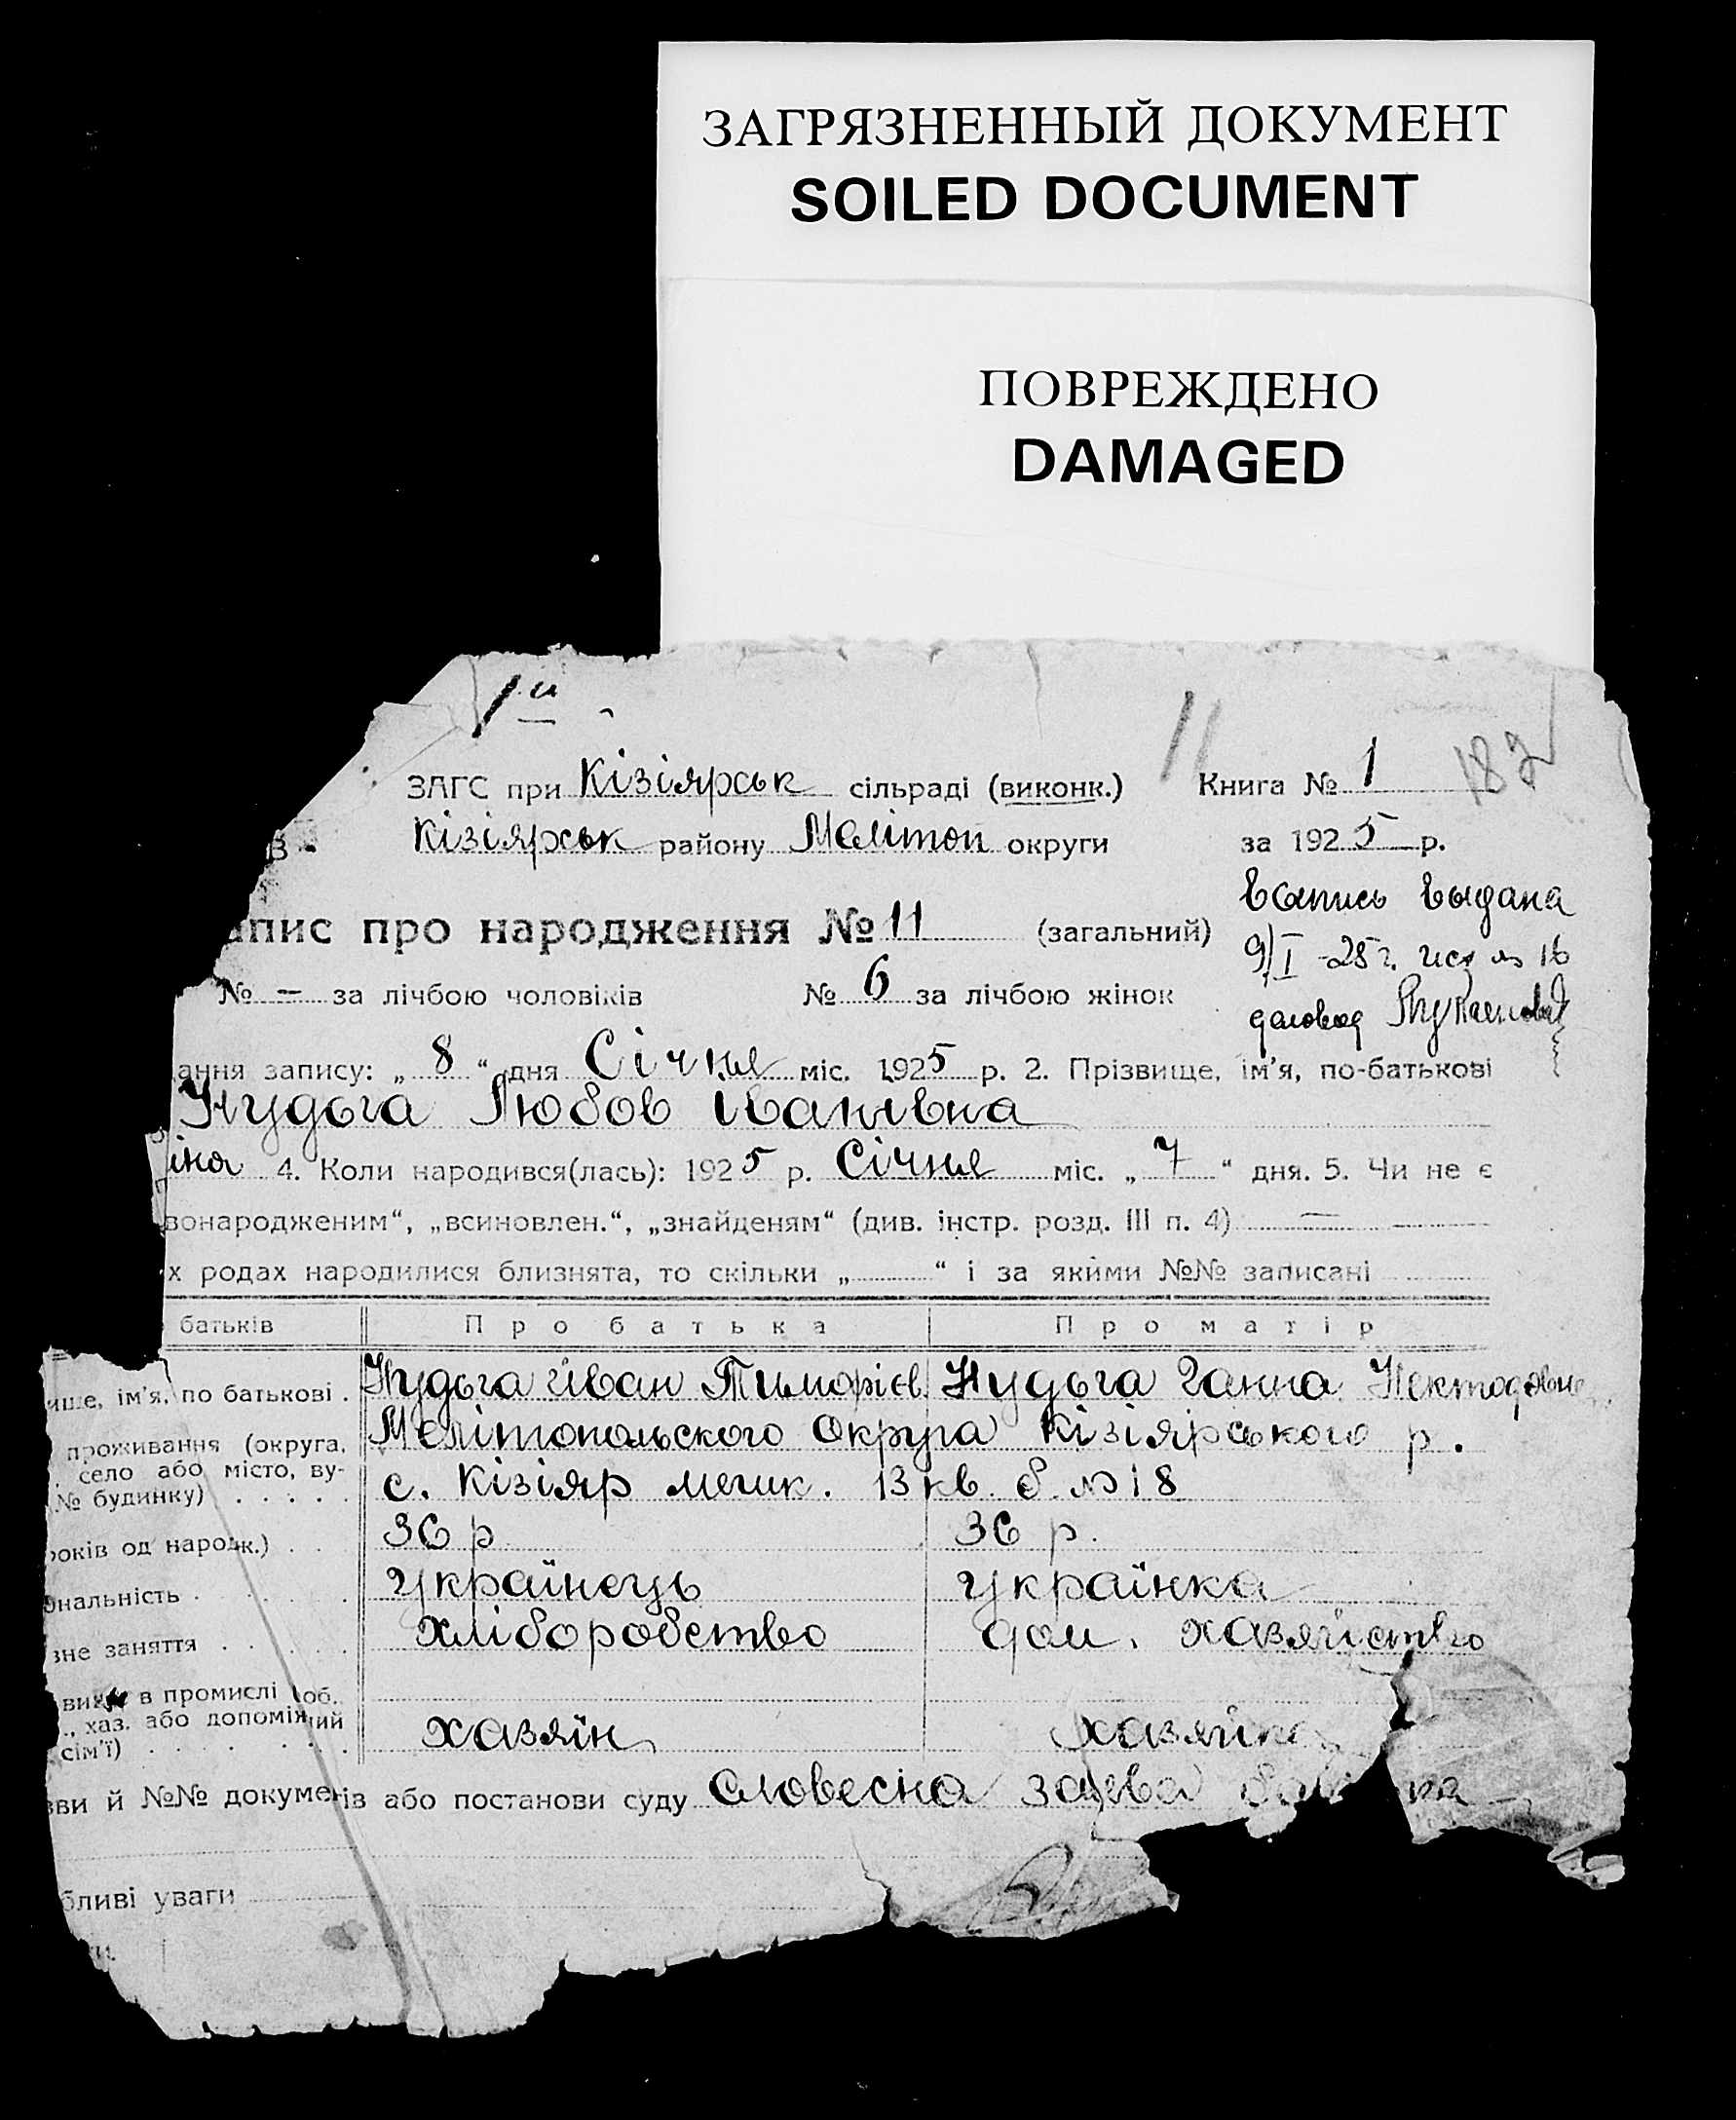 ЗАГРЯЗНЕННЫЙ ДОКУМЕНТ
SOILED DOCUMENT
ПОВРЕЖДЕНО
DAMAGED
1й
11
187
ЗАГС при Кізіярськ сільраді (виконк.) Книга № 1
Кізіярськ району Мелітоп округи за 1925 р.
апис про народження № 11 (загальний)
Выпись выдана
9/I -25 г. исх № 16
№ — за лічбою чоловіків № 6 за лічбою жінок
ання запису: „8“ дня Січня міс. 1925 р. 2. Прізвище, ім’я, по-батькові
Нудьга Любов Іванівна
іна 4. Коли народився(лась): 1925 р. Січня міс. „7“ дня. 5. Чи не є
вонародженим“, „всиновлен.“, „знайденям“ (див. інстр. розд. III п. 4) —
х родах народилися близнята, то скільки „ “ і за якими №№ записані
батьків Про батька Про матір
ище, ім’я, по батькові . Нудьга Іван Тимофієв. Нудьга Ганна
проживання (округа, Мелітопольского Округа Кізіярського р.
село або місто, ву-
№ будинку) . . . . . с. Кізіяр мешк. 13 кв. д. № 18
років од народж.) . . 36 р 36 р.
ональність . . . . Українець Українка
вне заняття . . . . хліборобство дом. хазяйство
в промислі (об.
., хаз. або допоміжний
сім’ї) . . . . . хазяїн хазяйка
зви й №№ документів або постанови суду Словесна заява
бливі уваги